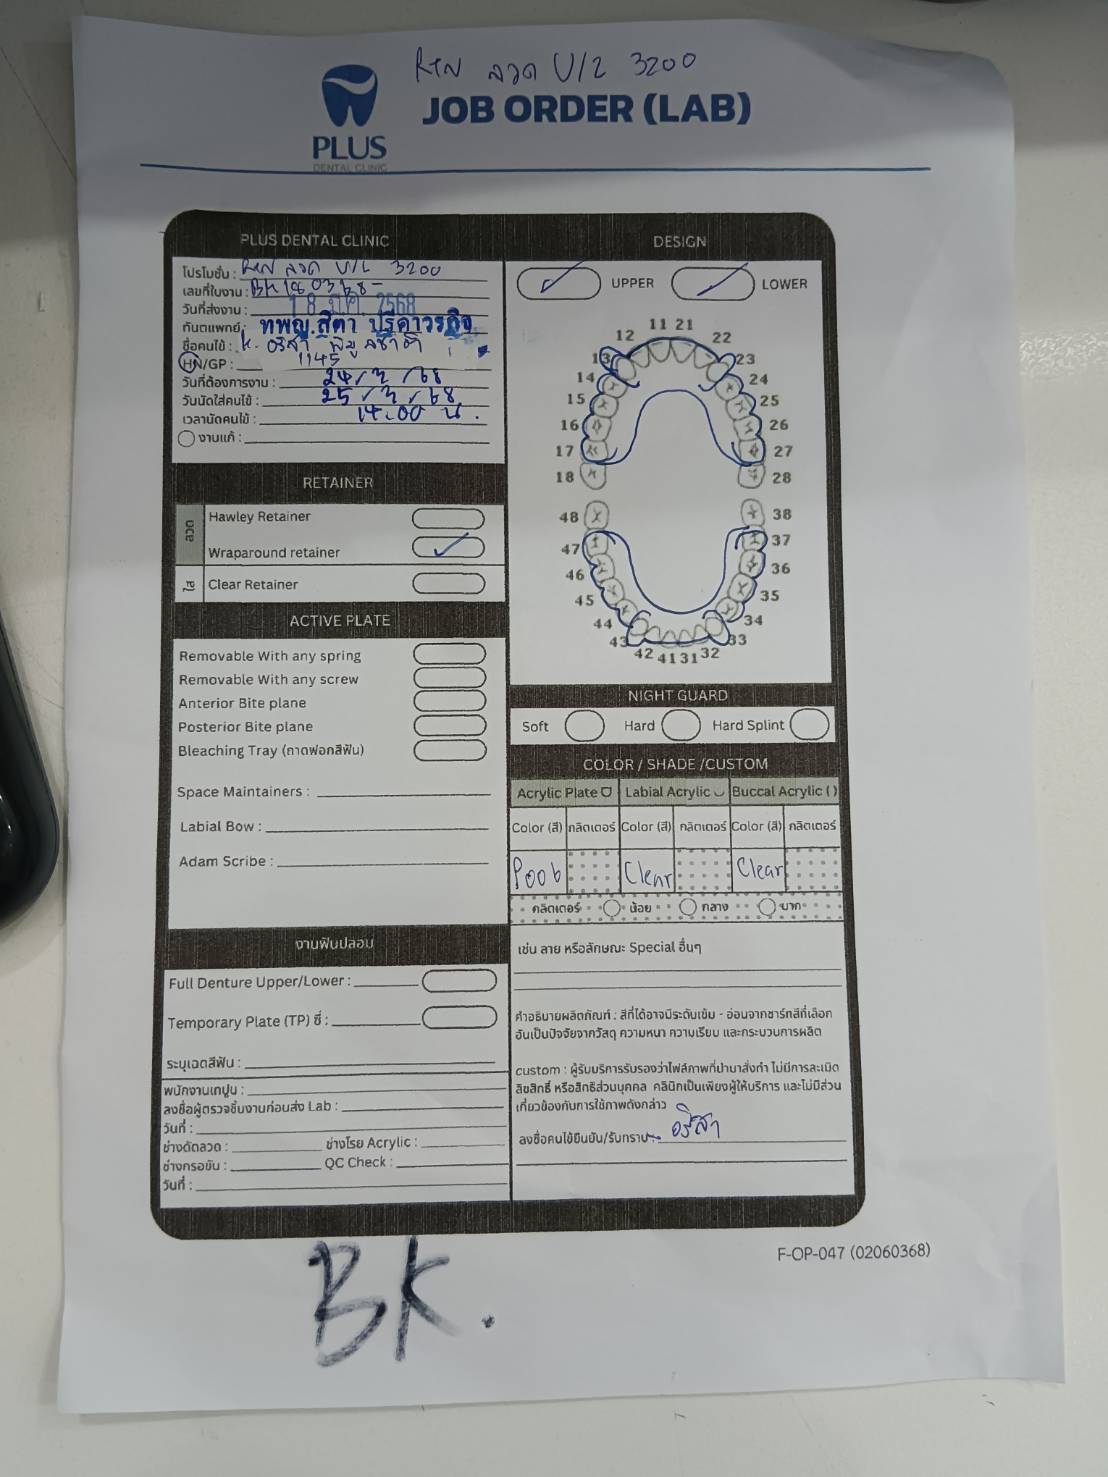 RTN ลวด U/L 3200
JOB ORDER (LAB)
PLUS
DENTAL CLINIC
PLUS DENTAL CLINIC
โปรโมชั่น : RTN ลวด U/L 3200
เลขที่ใบงาน : BK180368-
วันที่ส่งงาน : 18 มี.ค. 2568
ทันตแพทย์ : ทพญ.สิตา ปรีดาวรกิจ
ชื่อคนไข้ : K. อริสา
HN/GP : 1145
วันที่ต้องการงาน : 24/3/68
วันนัดใส่คนไข้ : 25/3/68
เวลานัดคนไข้ : 14.00 น.
งานแก้ :
RETAINER
ลวด
Hawley Retainer
Wraparound retainer
ใส
Clear Retainer
ACTIVE PLATE
Removable With any spring
Removable With any screw
Anterior Bite plane
Posterior Bite plane
Bleaching Tray (ถาดฟอกสีฟัน)
Space Maintainers :
Labial Bow :
Adam Scribe :
งานฟันปลอม
Full Denture Upper/Lower :
Temporary Plate (TP) ซี่ :
ระบุเฉดสีฟัน :
พนักงานเทปูน :
ลงชื่อผู้ตรวจชิ้นงานก่อนส่ง Lab :
วันที่ :
ช่างดัดลวด : ช่างโรย Acrylic :
ช่างกรอขัน : QC Check :
วันที่ :
DESIGN
UPPER LOWER
11 21
12 22
13 23
14 24
15 25
16 26
17 27
18 28
48 38
47 37
46 36
45 35
44 34
43 33
42 41 31 32
NIGHT GUARD
Soft Hard Hard Splint
COLOR / SHADE /CUSTOM
Acrylic Plate Labial Acrylic Buccal Acrylic ( )
Color (สี) กลิตเตอร์ Color (สี) กลิตเตอร์ Color (สี) กลิตเตอร์
P006 Clear Clear
กลิตเตอร์ น้อย กลาง มาก
เช่น ลาย หรือลักษณะ Special อื่นๆ
คำอธิบายผลิตภัณฑ์ : สีที่ได้อาจมีระดับเข้ม - อ่อนจากชาร์ทสีที่เลือก
อันเป็นปัจจัยจากวัสดุ ความหนา ความเรียบ และกระบวนการผลิต
custom : ผู้รับบริการรับรองว่าไฟล์ภาพที่นำมาสั่งทำ ไม่มีการละเมิด
ลิขสิทธิ์ หรือสิทธิส่วนบุคคล คลินิกเป็นเพียงผู้ให้บริการ และไม่มีส่วน
เกี่ยวข้องกับการใช้ภาพดังกล่าว
ลงชื่อคนไข้ยืนยัน/รับทราบ อริสา
F-OP-047 (02060368)
BK.